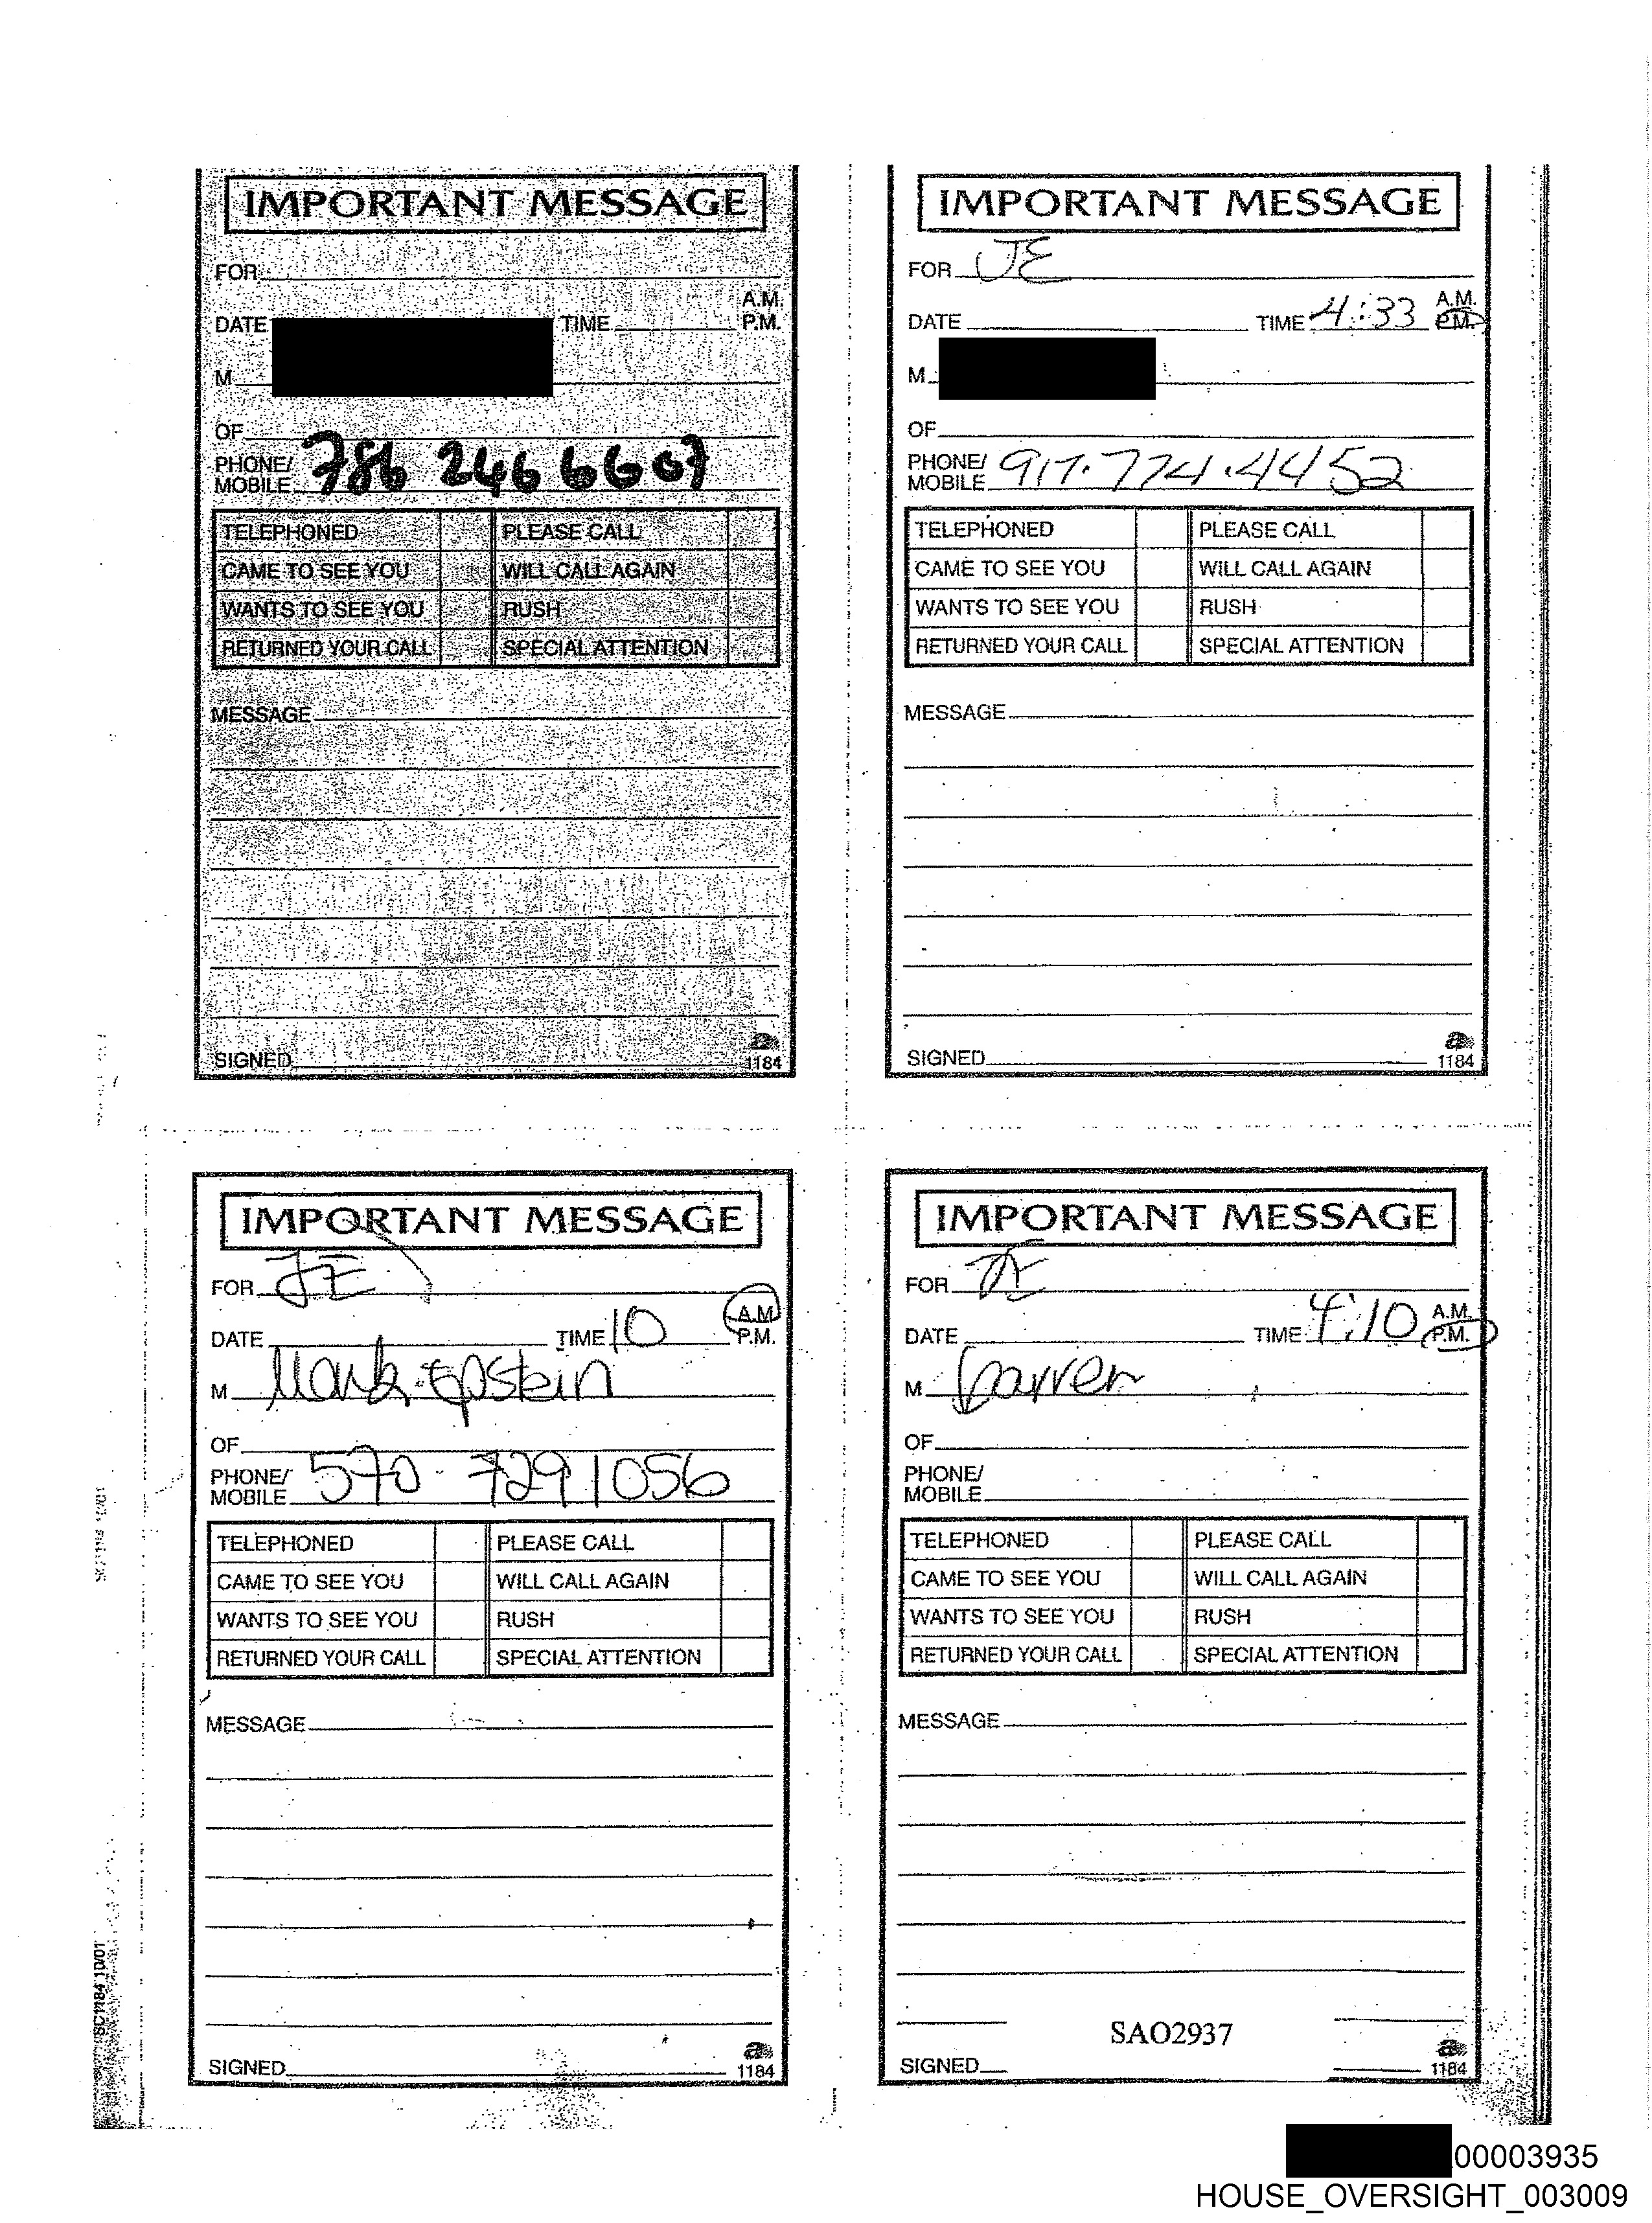 IMPORTANT MESSAGE
FOR
A.M.
DATE TIME P.M.
M
OF
PHONE/ 786 246 6607
MOBILE
TELEPHONED PLEASE CALL
CAME TO SEE YOU WILL CALL AGAIN
WANTS TO SEE YOU RUSH
RETURNED YOUR CALL SPECIAL ATTENTION
MESSAGE
SIGNED
1184
IMPORTANT MESSAGE
FOR JE
A.M.
DATE TIME 4:33 P.M.
M
OF
PHONE/ 917.774.4452
MOBILE
TELEPHONED PLEASE CALL
CAME TO SEE YOU WILL CALL AGAIN
WANTS TO SEE YOU RUSH
RETURNED YOUR CALL SPECIAL ATTENTION
MESSAGE
SIGNED
1184
IMPORTANT MESSAGE
FOR JE
A.M.
DATE TIME 10 P.M.
M Mark Epstein
OF
PHONE/ 570 7291056
MOBILE
TELEPHONED PLEASE CALL
CAME TO SEE YOU WILL CALL AGAIN
WANTS TO SEE YOU RUSH
RETURNED YOUR CALL SPECIAL ATTENTION
MESSAGE
SIGNED
1184
SC1184 10/01
IMPORTANT MESSAGE
FOR JE
A.M.
DATE TIME 4:10 P.M.
M
OF
PHONE/
MOBILE
TELEPHONED PLEASE CALL
CAME TO SEE YOU WILL CALL AGAIN
WANTS TO SEE YOU RUSH
RETURNED YOUR CALL SPECIAL ATTENTION
MESSAGE
SAO2937
SIGNED
1184
00003935
HOUSE_OVERSIGHT_003009